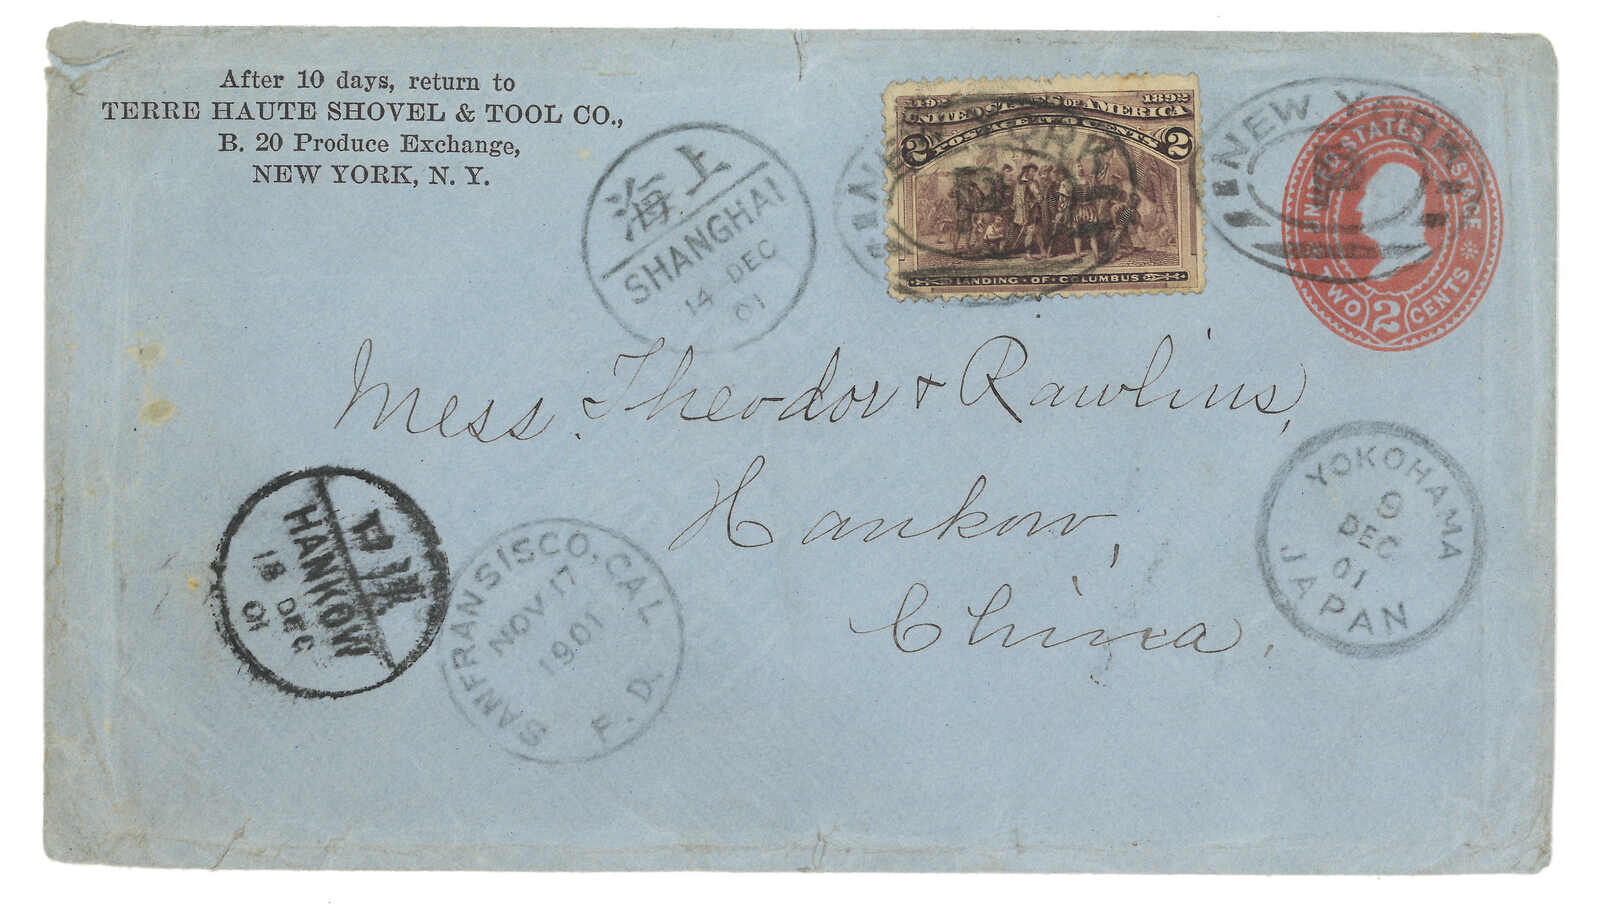 After 10 days, return to
TERRE HAUTE SHOVEL & TOOL CO.,
B. 20 Produce Exchange,
NEW YORK, N. Y.
海上
SHANGHAI
14 DEC
01
1492 1892
UNITED STATES OF AMERICA
POSTAGE TWO CENTS
2 2
LANDING · OF · COLUMBUS
NEW YORK
NEW YORK
UNITED STATES POSTAGE
TWO 2 CENTS
Mess. Theodor & Rawlins,
Hankow,
China.
HANKOW
18 DEC
01
SANFRANSISCO, CAL.
NOV 17
1901
F. D.
YOKOHAMA
9
DEC
01
JAPAN